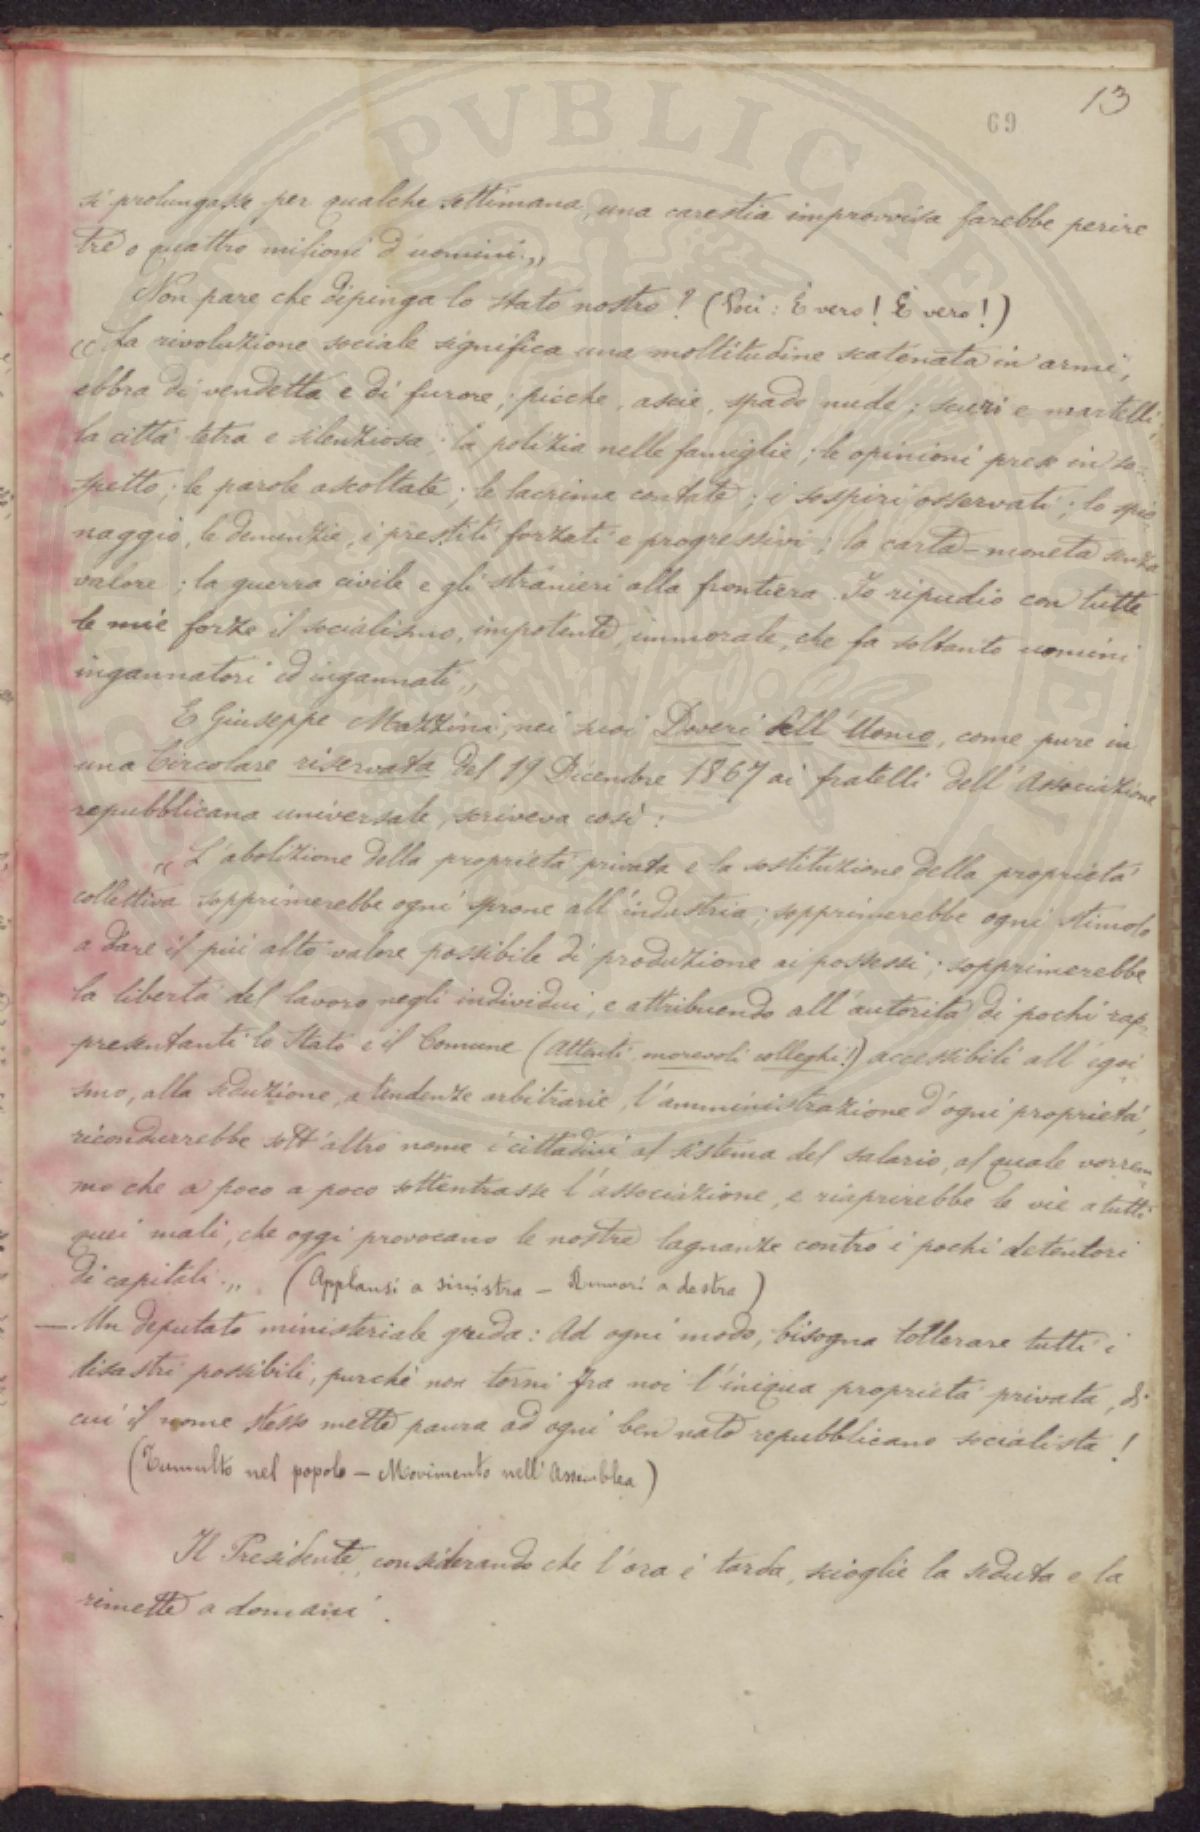 13
69
si prolungasse per qualche settimana, una carestia improvvisa farebbe perire
tre o quattro milioni d'uomini.„
Non pare che dipinga lo stato nostro? (Voci: È vero! È vero!)
„ La rivoluzione sociale significa una moltitudine scatenata in armi,
ebbra di vendetta e di furore; picche, ascie, spade nude; scuri e martelli;
la città tetra e silenziosa; la polizia nelle famiglie; le opinioni prese in so-
spetto; le parole ascoltate; le lacrime contate; i sospiri osservati; lo spio-
naggio, le denunzie, i prestiti forzati e progressivi; la carta-moneta senza
valore; la guerra civile e gli stranieri alla frontiera. Io ripudio con tutte
le mie forze il socialismo, impotente, immorale, che fa soltanto uomini
ingannatori ed ingannati„
E Giuseppe Mazzini, nei suoi Doveri dell'Uomo, come pure in
una Circolare riservata del 19 Dicembre 1867 ai fratelli dell'Associazione
repubblicana universale, scriveva così:
„ L'abolizione della proprietà privata e la sostituzione della proprietà
collettiva sopprimerebbe ogni sprone all'industria; sopprimerebbe ogni stimolo
a dare il più alto valore possibile di produzione ai possessi; sopprimerebbe
la libertà del lavoro negli individui, e attribuendo all'autorità di pochi rap-
presentanti lo Stato e il Comune (attenti onorevoli colleghi!) accessibili all'egoi-
smo, alla seduzione, a tendenze arbitrarie, l'amministrazione d'ogni proprietà,
ricondurrebbe sott'altro nome i cittadini al sistema del salario, al quale vorrem-
mo che a poco a poco sottentrasse l'associazione, e riaprirebbe le vie a tutti
quei mali, che oggi provocano le nostre lagnanze contro i pochi detentori
di capitali.„ (Applausi a sinistra – Rumori a destra)
— Un deputato ministeriale grida: Ad ogni modo, bisogna tollerare tutti i
disastri possibili, purchè non torni fra noi l'iniqua proprietà privata, di
cui il nome stesso mette paura ad ogni ben nato repubblicano socialista!
(Tumulto nel popolo – Movimento nell'Assemblea)
Il Presidente, considerando che l'ora è tarda, scioglie la seduta e la
rimette a domani.